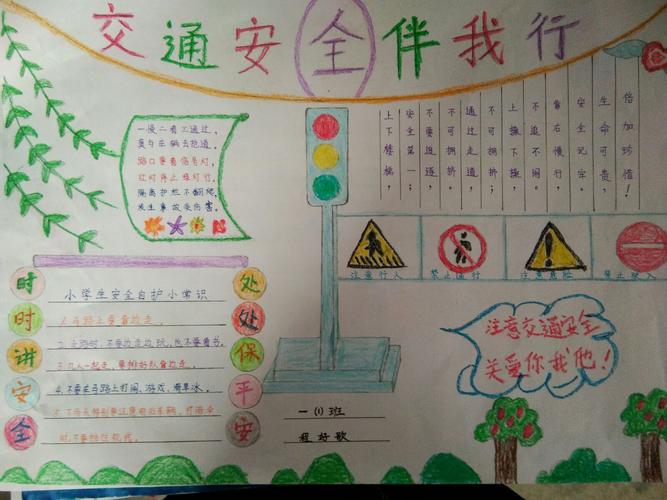 交通安全伴我行
一慢二看三通过，
莫与车辆去抢道。
路口要看信号灯，
红灯停止绿灯行。
隔离护栏不翻爬，
发生事故受伤害。
上下楼梯，
安全第一；
不要追逐，
不可拥挤。
通过走道，
不可拥挤，
上操下操，
不追不闹。
靠右慢行，
安全记牢。
生命可贵，
倍加珍惜！
注意行人
禁止通行
注意危险
禁止驶入
时时讲安全
处处保平安
小学生安全自护小常识
1.马路上要靠边走。
2.走路时,不要边走边玩,也不要看书。
3.几人一起走,要排好队靠边走。
4.不要在马路上打闹、游戏、
5.下雨天特别要注意 车辆,打雨伞
时,不要挡住视线。
注意交通安全
关爱你我他！
一(1)班
程好歌